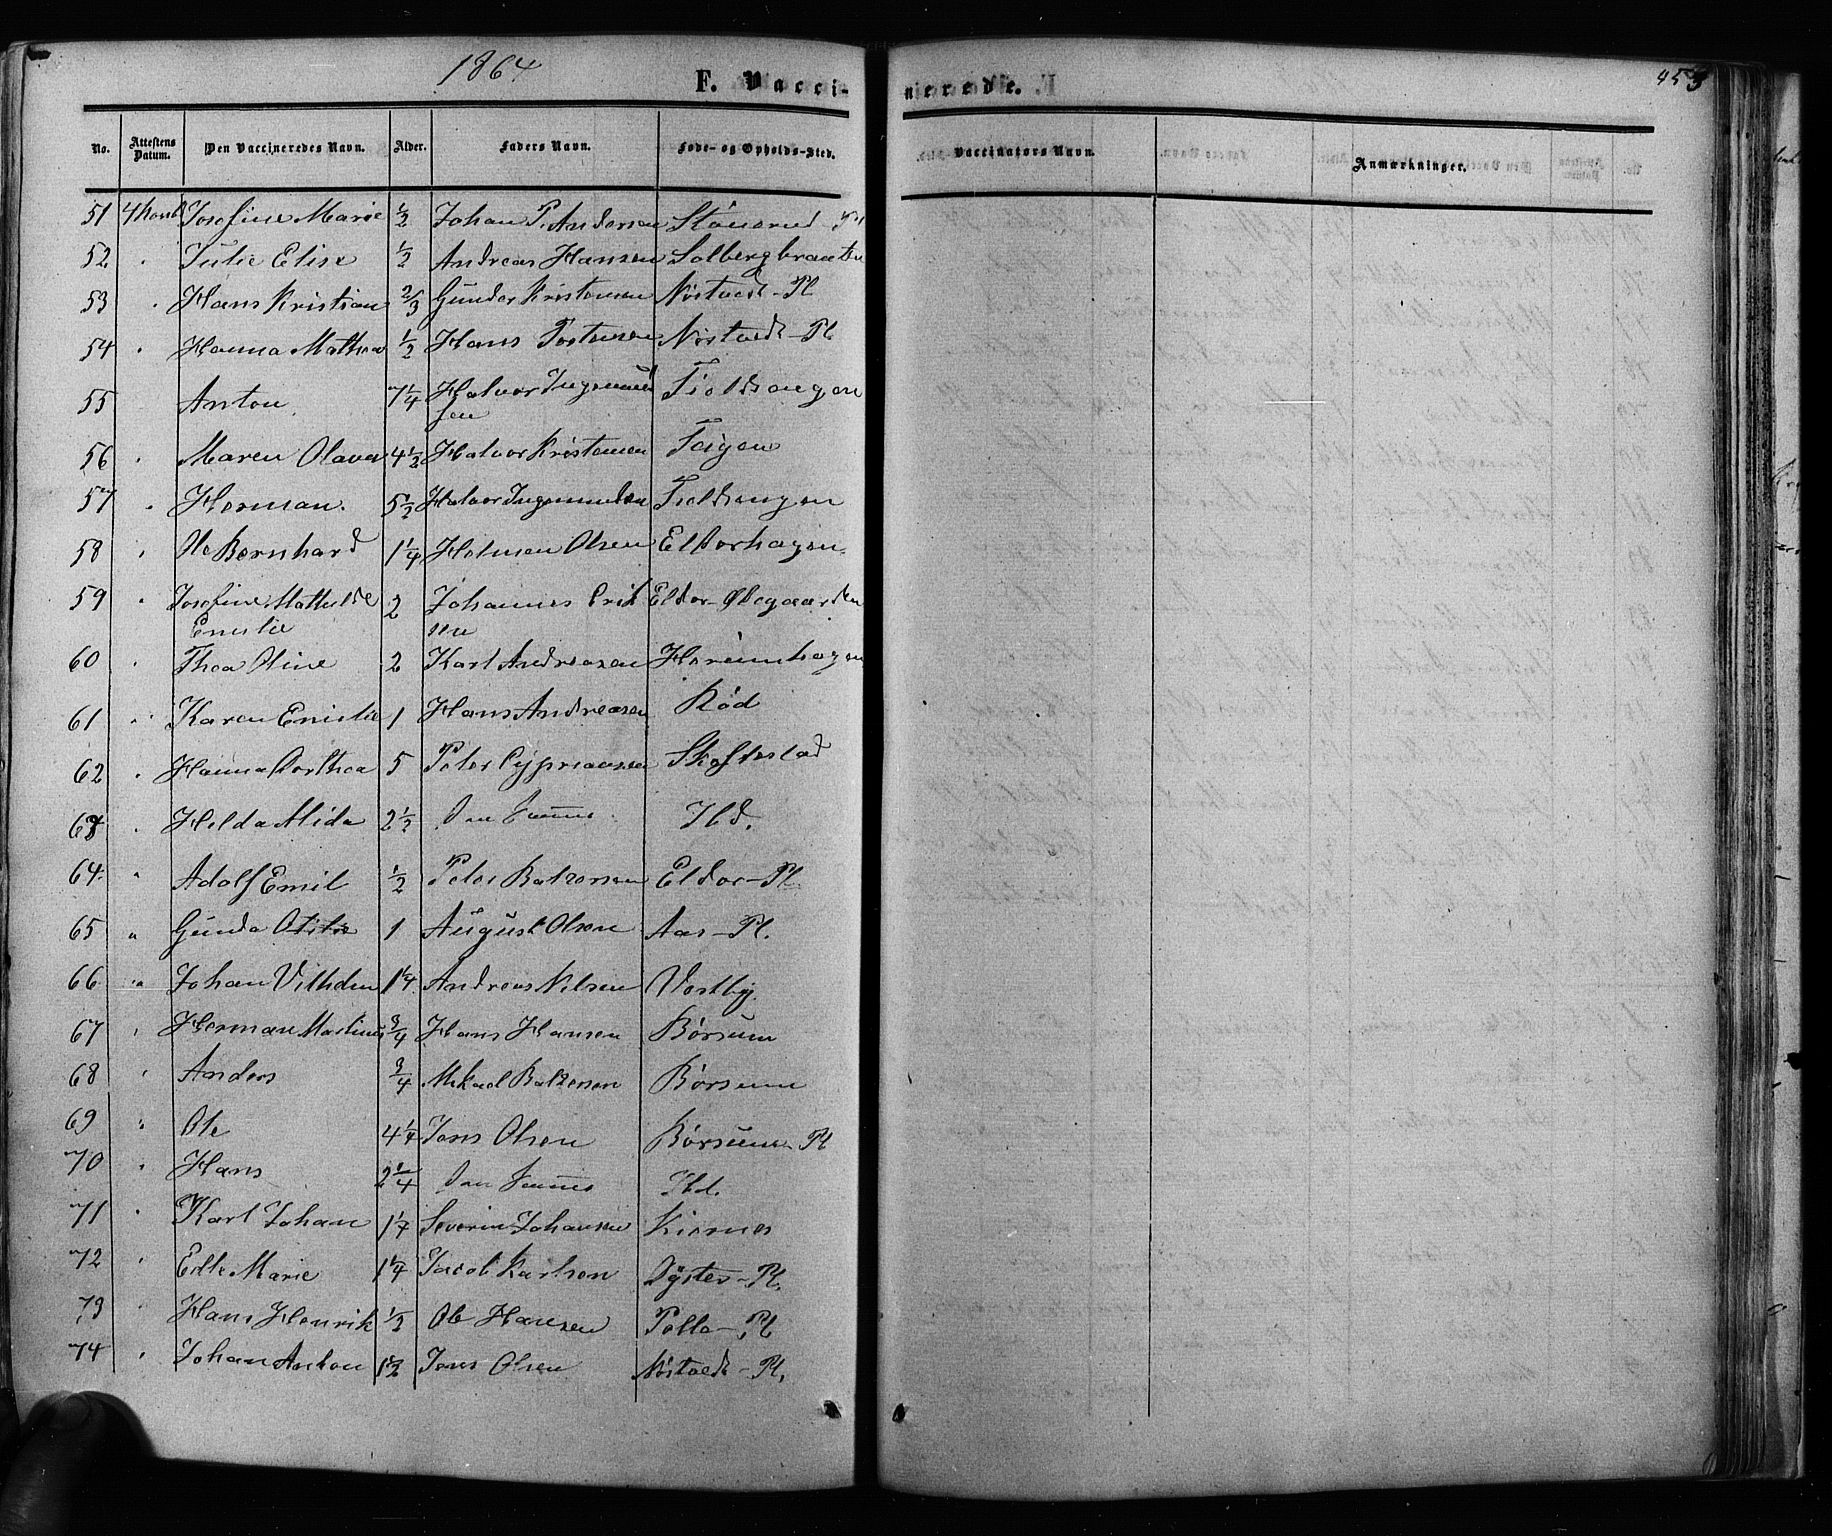 1864
F. Vacci-
No. Attestens Datum. Den Vaccineredes Navn. Alder. Faders Navn. Føde- og Opholds-Sted.
51 Josefine Marie 1/2 Johan P. Andersen Stönerud-Pl
52 " Julie Elise 1/2 Andreas Hansen Solbergbraaten
53 " Hans Kristian 2/3 Gunder Kristensen Nøstvedt-Pl
54 " Hanna Mathea 1/2 Hans Tostensen Nøstvedt-Pl
55 Anton 7 1/4 Halvor Ingemund
sen
56 " Maren Olava 4 1/2 Halvor Kristensen Teigen
57 " Herman. 5 1/2 Halvor Ingemundsen
58 " Ole Bernhard 1 1/4 Helmer Olsen Eldorhagen
59 " Josefine Mathilde 2 Johannes Erik Eldor-Ødegaarden
Emilie sen
60 " Thea Oline 2 Karl Andreasen
61 " Karen Emilie 1 Hans Andreasen Rød
62 " Hanna Dorthea 5 Peter Cypriansen Skoftestad
63 " Helda Alida 2 1/2 Den Samme Ibd.
64 " Adolf Emil 1/2 Peter Eldor-Pl.
65 " Gunda Otilie 1 August Olsen Aas-Pl.
66 " Johan Vilhelm 1 1/4 Andreas Nilsen Vestby
67 " Herman Martinus 3/4 Hans Hansen Børsum
68 " Anders 3/4 Mikael Børsum
69 " Ole 4 1/4 Jens Olsen Børsum-Pl
70 " Hans 2 1/4 Den Samme Ibd.
71 " Karl Johan 1 1/4 Severin Johansen Kjernes
72 " Edle Marie 1 1/4 Jacob Karlsen Dyster-Pl.
73 " Hans Henrik 1/2 Ole Hansen Polle-Pl
74 " Johan Anton 1 1/2 Jens Olsen Nøstvedt-Pl.
nerede.
453
Vaccinators Navn. Anmærkninger.